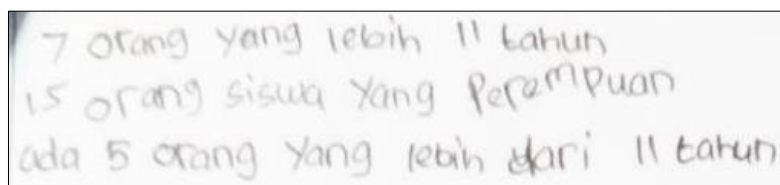 7 orang yang lebih 11 tahun
15 orang siswa yang Perempuan
ada 5 orang yang lebih dari 11 tahun